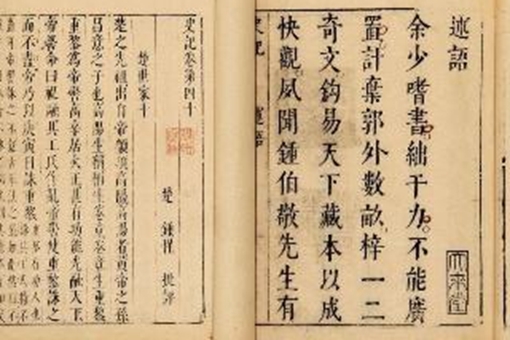 述語
余少嗜書絀于力不能廣
置計棄郭外數畝梓一二
奇文鈎易天下藏本以成
快觀夙聞鍾伯敬先生有
大來堂
史記
史記卷第四十
楚世家十
楚 鍾惺 批評
楚之先祖出自帝顓頊高陽高陽者黃帝之孫
昌意之子也高陽生稱稱生卷章卷章生重黎
重黎爲帝嚳高辛居火正甚有功能光融天下
帝嚳命曰祝融共工氏作亂帝嚳使重黎誅之
而不盡帝乃以庚寅日誅重黎